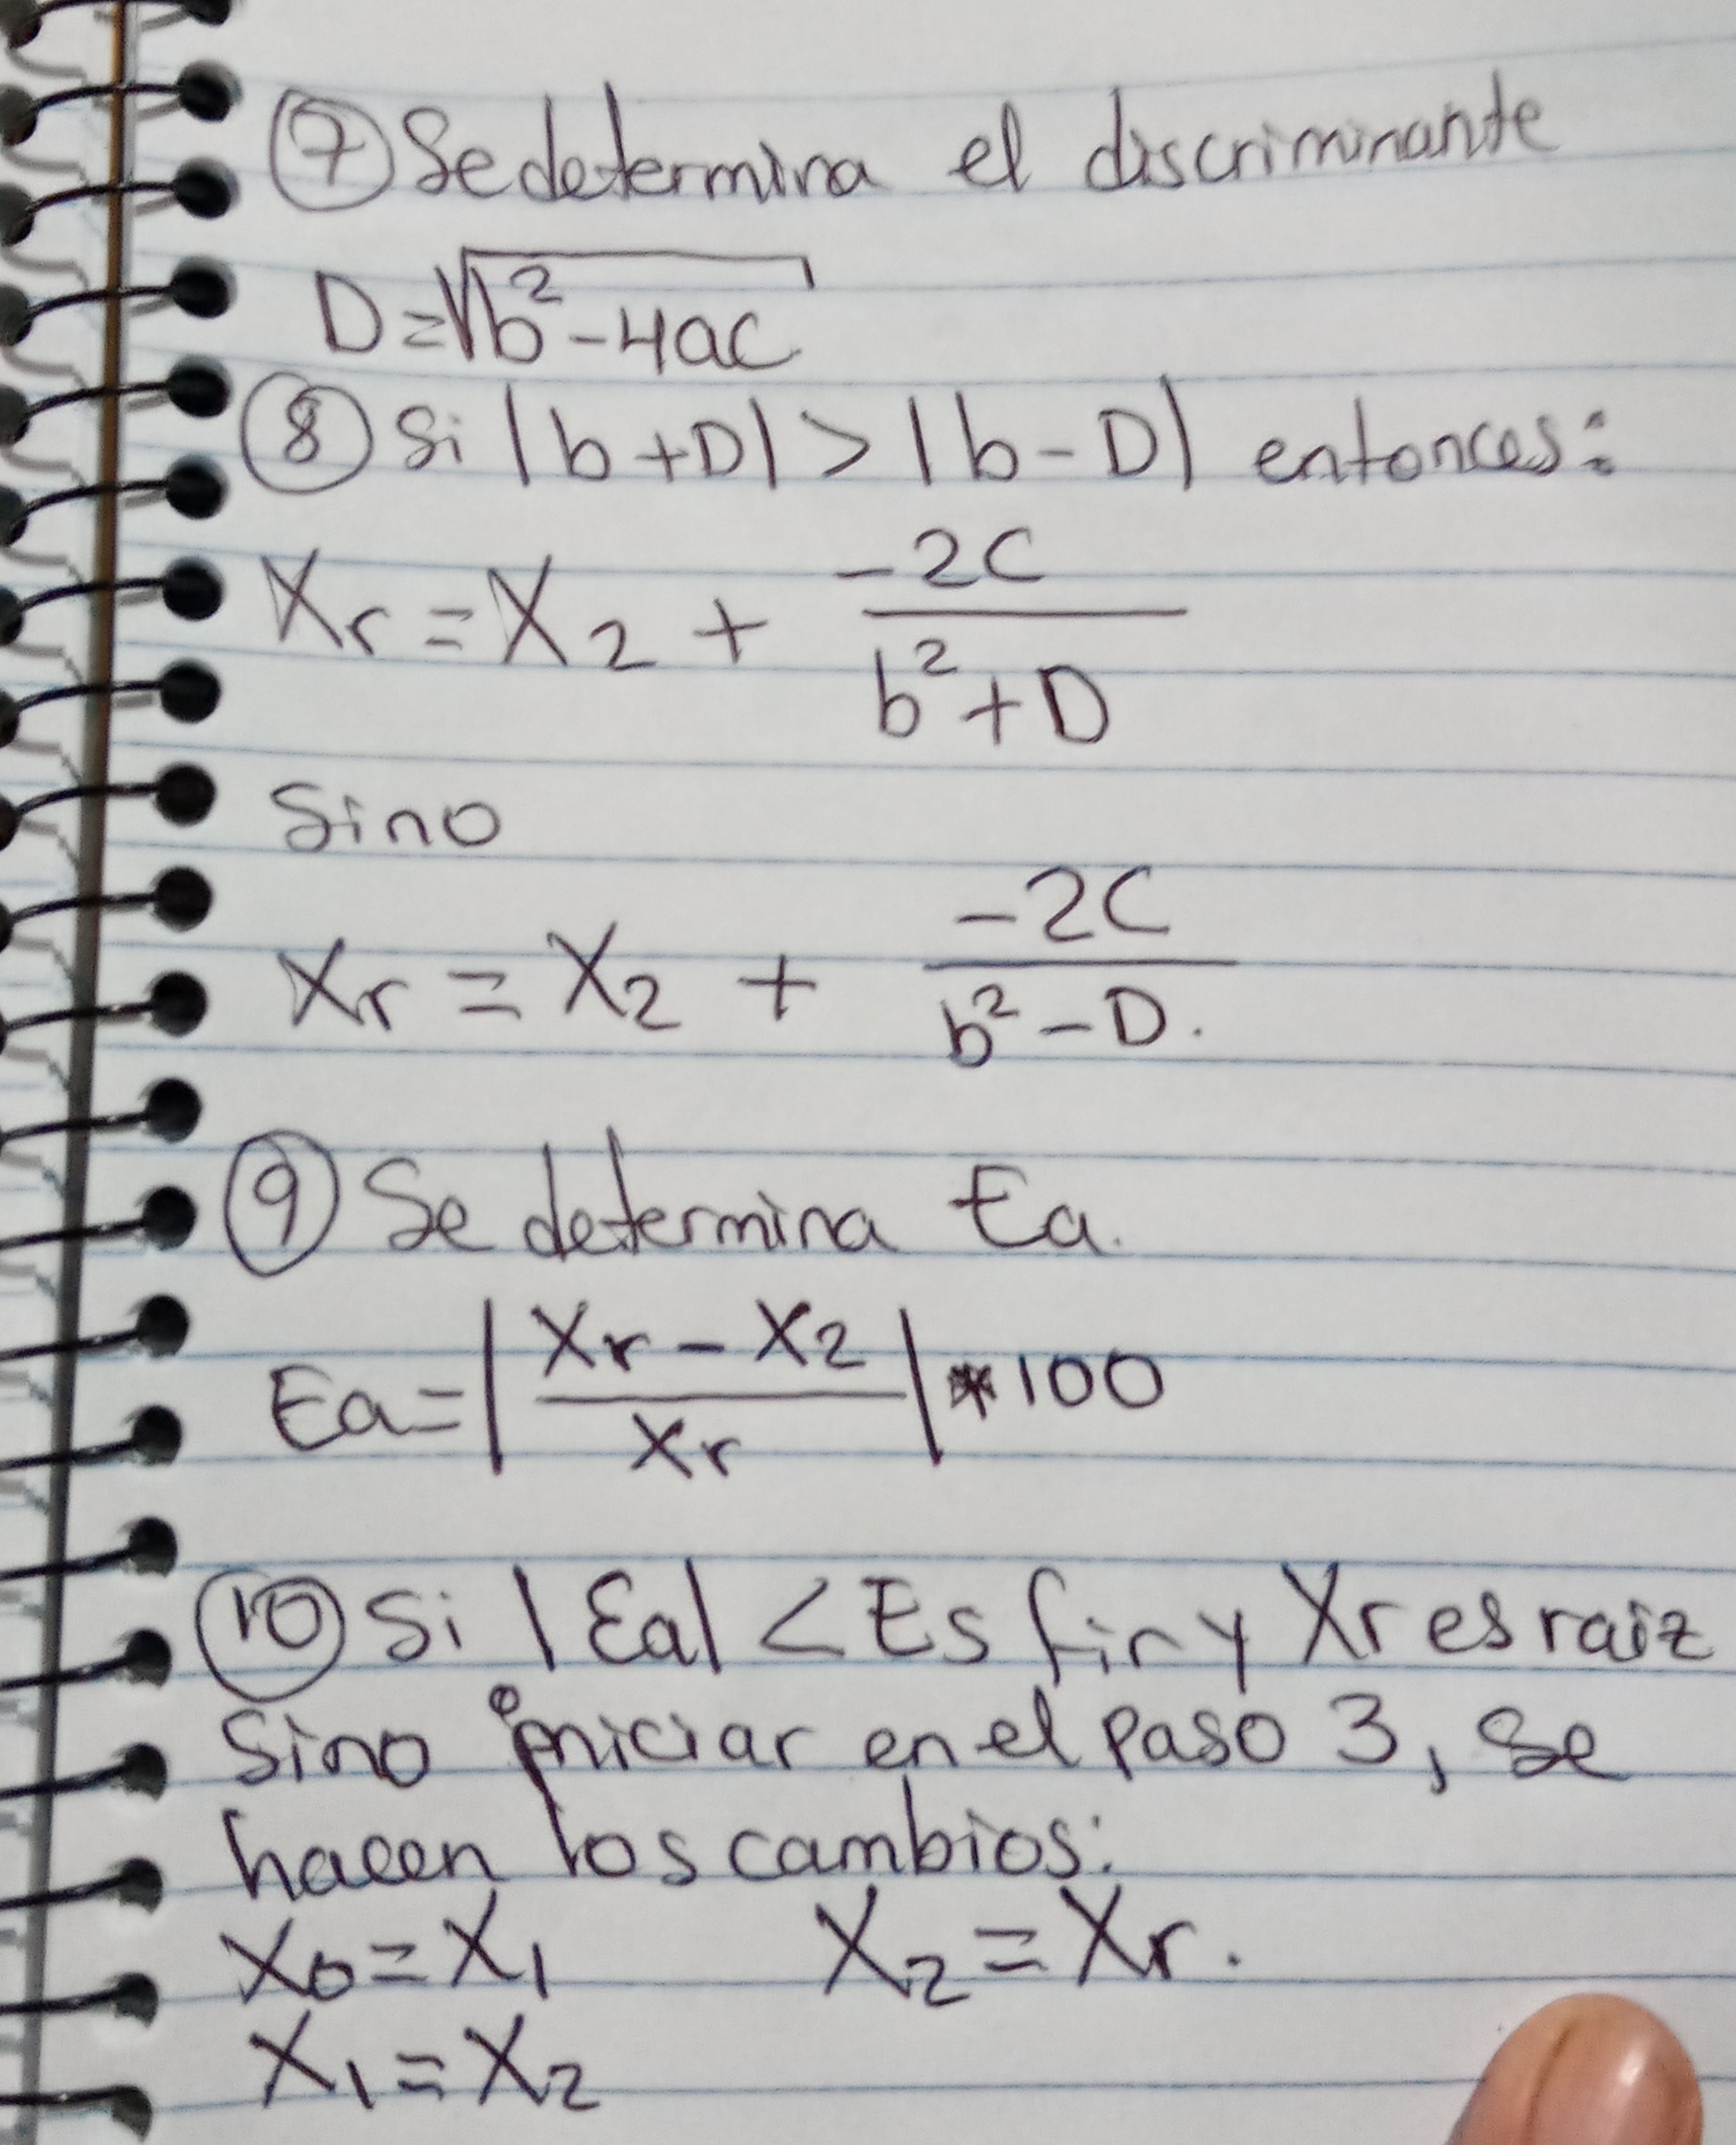 ⑦ Se determina el discriminante
D = √b² - 4ac
⑧ Si |b+D| > |b-D| entonces:
Xr = X₂ + -2C / b² + D
Sino
Xr = X₂ + -2C / b² - D.
⑨ Se determina Ea.
Ea = | Xr - X₂ / Xr | * 100
⑩ Si |Ea| < Es fin y Xr es raiz
Sino iniciar en el paso 3, se
hacen los cambios:
X₀ = X₁ X₂ = Xr.
X₁ = X₂